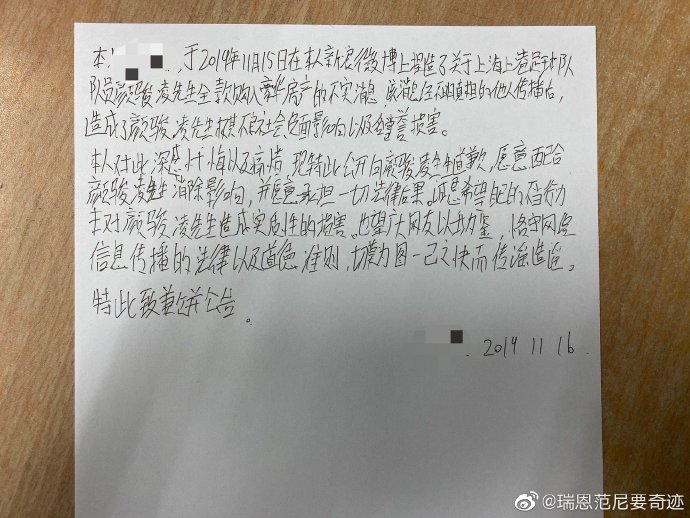 本 ，于2019年11月15日在本人新浪微博上捏造了关于上海上港足球队
队员颜骏凌先生全款购入豪华房产的不实消息 该消息经不明真相的他人传播后，
造成了颜骏凌先生极其不良社会负面影响以及名誉损害。
本人对此深感忏悔以及高 ，现特此公开向颜骏凌先生道歉，愿意配合
颜骏凌先生消除影响，并愿意承担一切法律后果。 希望 的 行为
未对颜骏凌先生造成实质性的损害。也望广大网友以此为鉴，恪守网络
信息传播的法律以及道德准则，切莫为图一己之快而传谣造谣。
特此致歉并公告。
2019 11 16.
@瑞恩范尼要奇迹